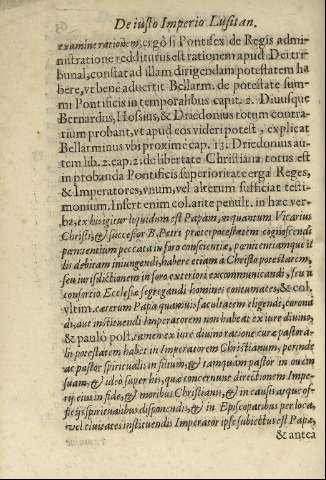 De iusto Imperio Lusitan.
examine rationem, ergo si Pontifex de Regis admi-
nistratione redditurus est rationem apud Dei tri-
bunal, constat ad illam dirigendam potestatem ha
bere, vt bene aduertit Bellarm. de potestate sum-
mi Pontificis in temporalibus capit. 2. Diuusque
Bernardus, Hosius, & Driedonius totum contra-
rium probant, vt apud eos videri potest, explicat
Bellarminus vbi proxime cap. 13. Driedonius au-
tem lib. 2. cap. 2. de libertate Christiana totus est
in probanda Pontificis superioritate erga Reges,
& Imperatores, vnum, vel alterum sufficiat testi-
monium. Infert enim col. ante penult. in hæc ver-
ba, ex his igitur liquidum est Papam, inquantum Vicarius
Christi, & successor B. Petri præter potestatem cognoscendi
pœnitentium peccata in foro conscientiæ, pœnitentiamque il
lis debitam iniungendi, habere etiam à Christo potestatem,
seu iurisdictionem in foro exteriori excommunicandi, seu à
consortio Ecclesiæ segregandi homines contumaces, & col.
vltim. cæterum Papa quamuis facultatem eligendi, coronã
di, aut instituendi Imperatorem non habeat ex iure diuino,
& paulò post. tamen ex iure diuino ratione curæ pastora-
lis potestatem habet in Imperatorem Christianum, perinde
ac pastor spiritualis in filium, & tanquam pastor in ouem
suam, & ideo super his, quæ concernunt directionem Impe-
rij eius in fide, & moribus Christianis, & in causis atque of-
ficijs spiritualibus disponendis, & in Episcopatibus per loca,
vel ciuitates instituendis Imperator ipse subiectus est Papæ,
& antea